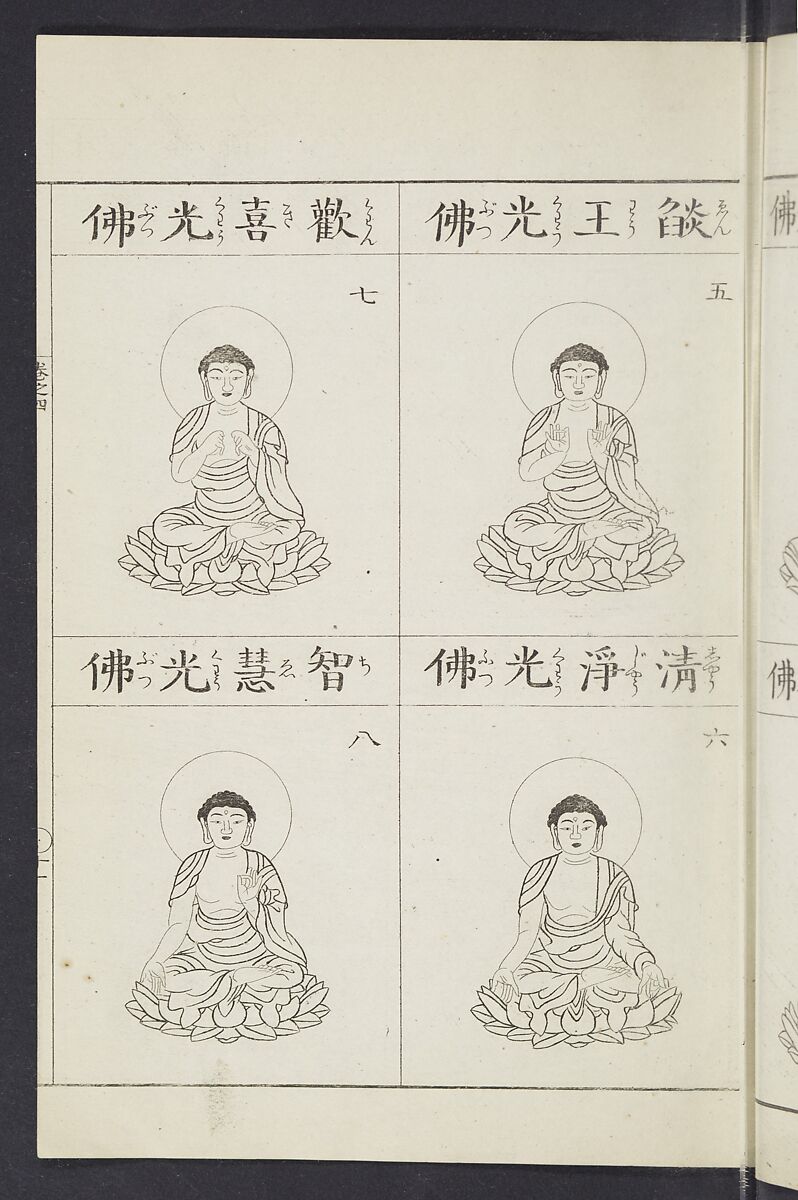 佛
佛
燄王光佛
ゑん わう くわう ぶつ
五
清淨光佛
しやう じやう くわう ふつ
六
歡喜光佛
くわん き くわう ぶつ
七
智慧光佛
ち ゑ くわう ぶつ
八
卷之四